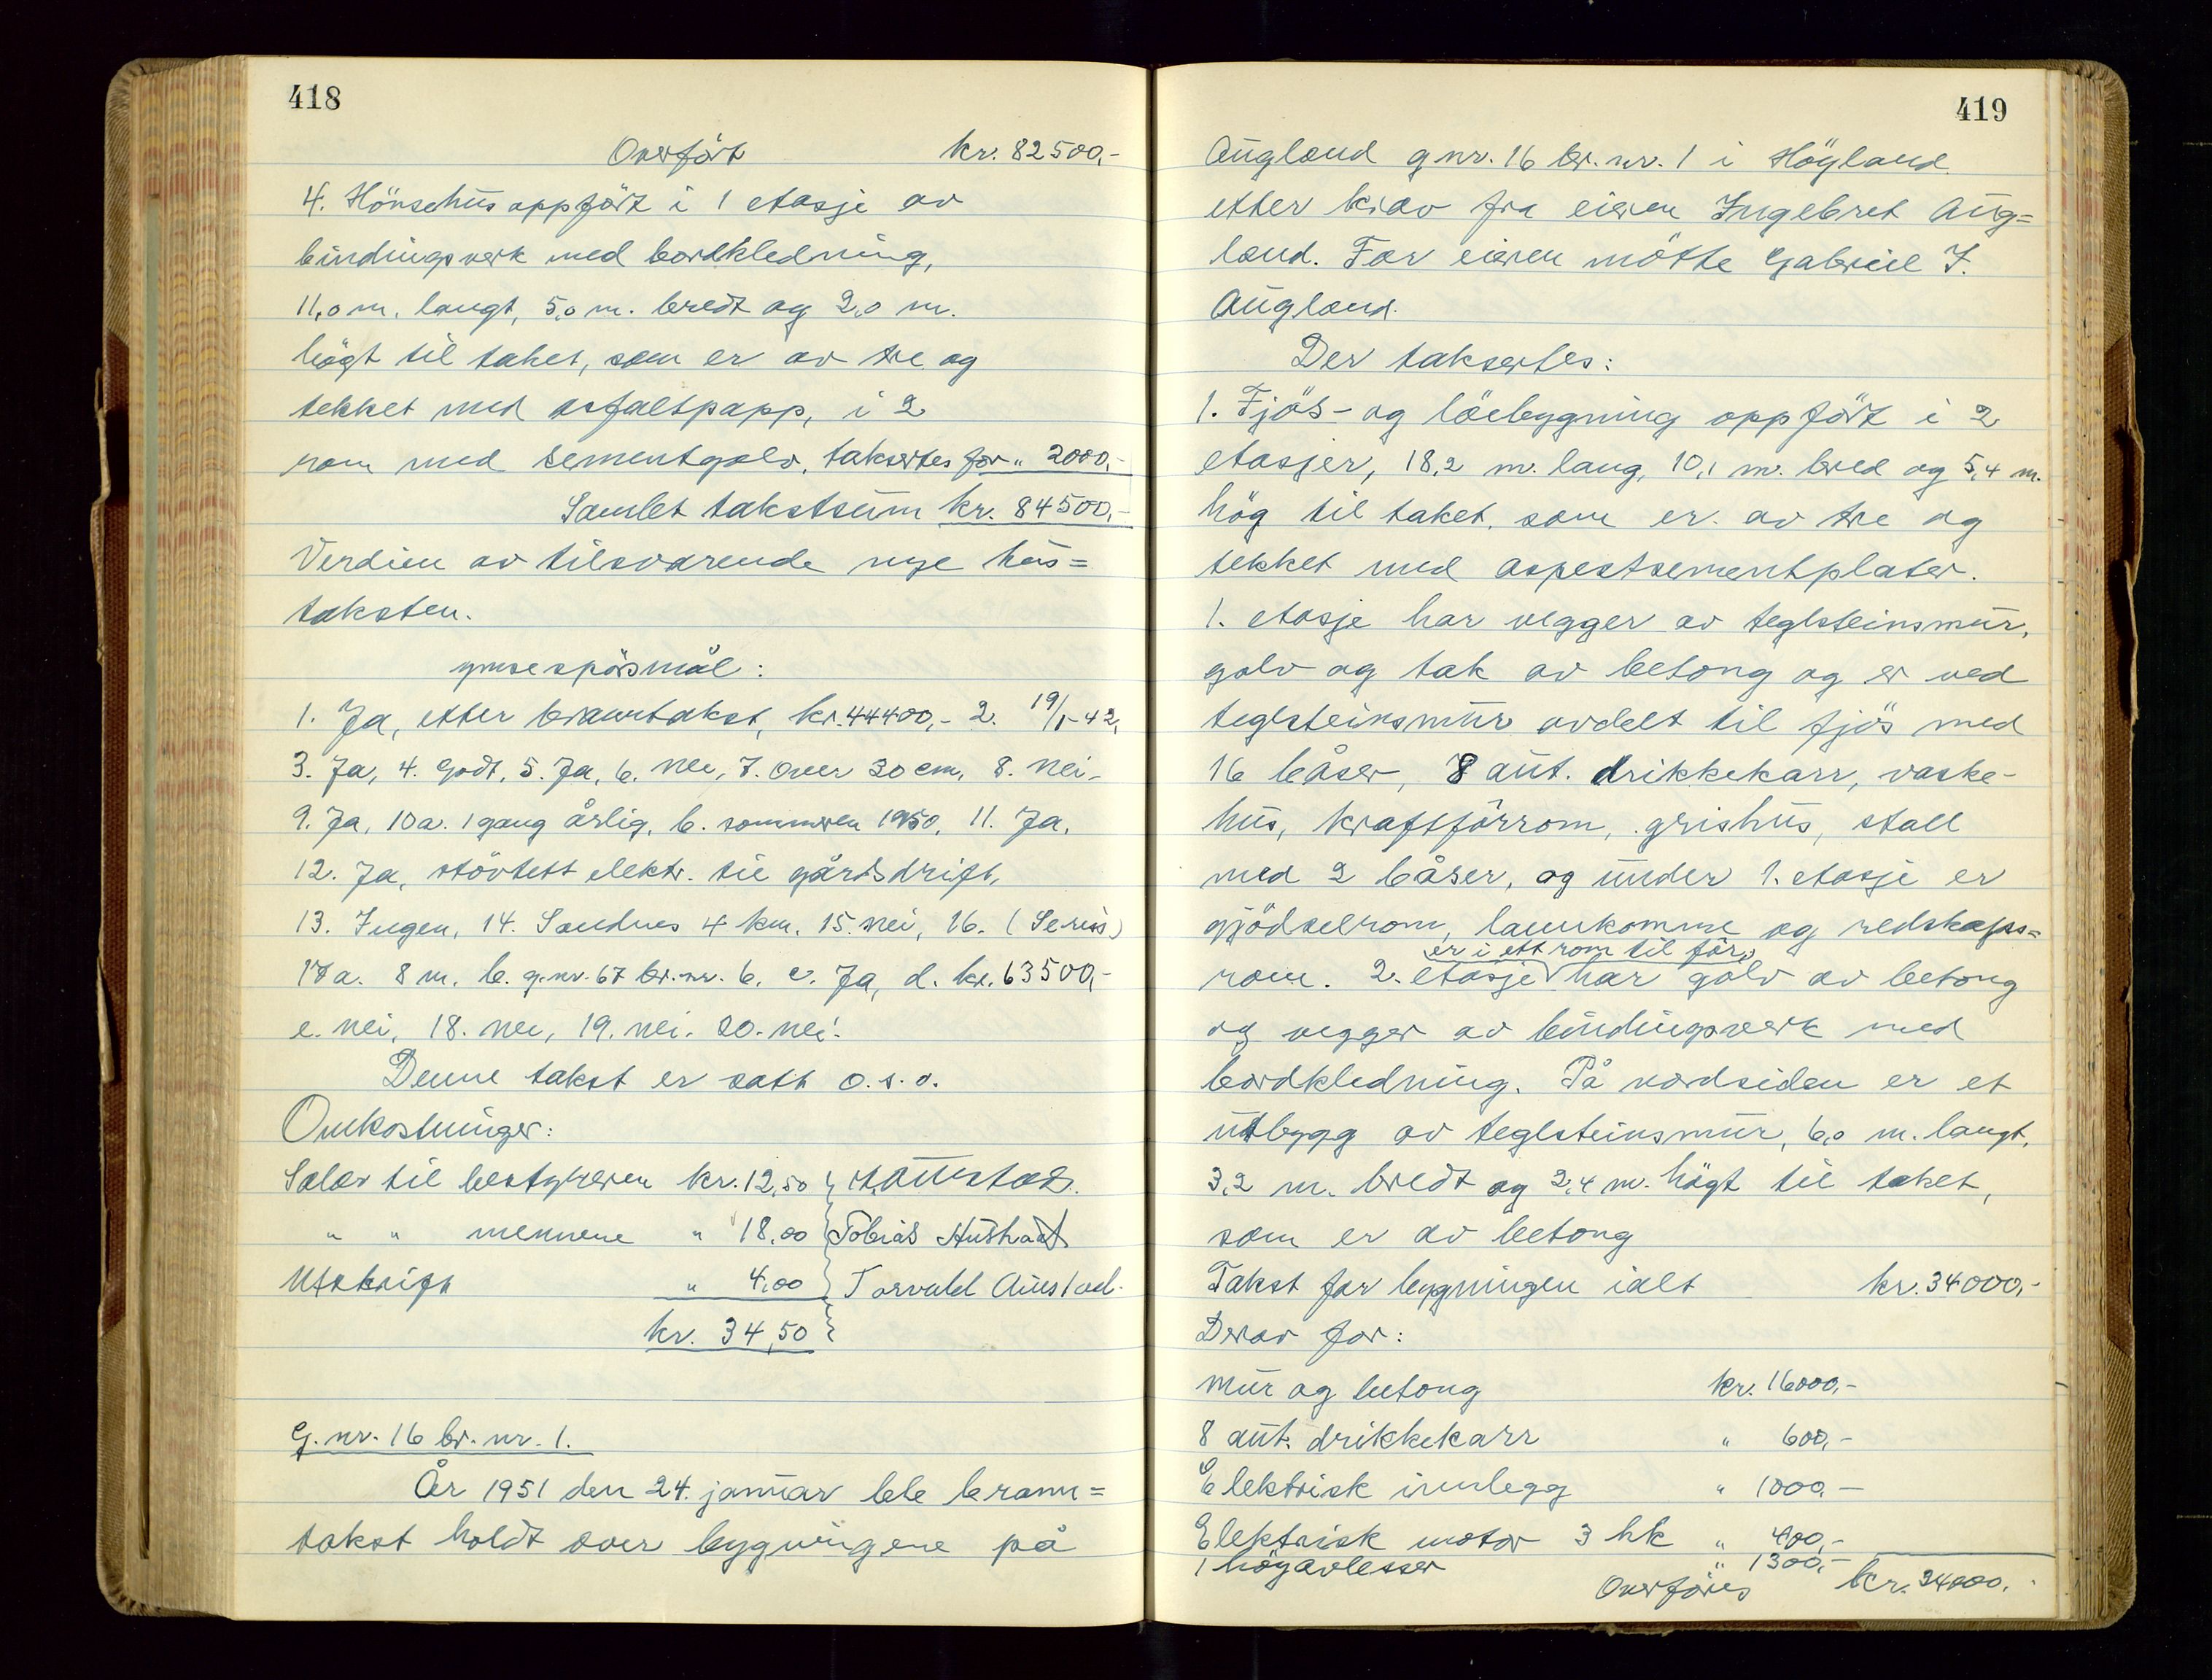 418
Overfört kr. 82500,-
4. Hönsehus oppfört i 1 etasje av
bindingsverk med bordkledning,
11,0 m. langt, 5,0 m. bredt og 2,0 m.
högt til taket, som er av tre og
tekket med asfaltpapp, i 2
rom med sementgolv, taksertes for " 2000,-
Samlet takstsum kr. 84500,-
Verdien av tilsvarende nye hus=
taksten.
Ymse spörsmål:
1. Ja, etter branntakst, kr. 44400,- 2. 19/1-42,
3. Ja, 4. Godt, 5. Ja, 6. Nei, 7. Over 30 cm, 8. Nei-
9. Ja, 10a. 1 gang årlig, b. sommeren 1950, 11. Ja,
12. Ja, stövtett elektr. til gårdsdrift,
13. Ingen, 14. Sandnes 4 km, 15. Nei, 16. (Se riss)
17a. 8 m. b. g.nr. 67 br.nr. 6. c. Ja, d. kr. 63500,-
e. nei, 18. Nei, 19. nei. 20. nei.
Denne takst er satt o.s.v.
Omkostninger:
Salær til bestyreren kr. 12,50
" " mennene " 18,00 Tobias Austrått
Utskrift " 4,00 Torvald Austad.
kr. 34,50
G.nr. 16 br. nr. 1.
År 1951 den 24. januar ble brann=
takst holdt over bygningene på
419
Augland g nr. 16 br. nr. 1 i Höyland
etter krav fra eieren Ingebret Aug=
land. For eieren mötte Gabriel I.
Augland.
Der taksertes:
1. Fjös- og löebygning oppfört i 2
etasjer, 18,2 m. lang, 10,1 m. bred og 5,4 m.
hög til taket, som er av tre og
tekket med aspestsementplater.
1. etasje har vegger av teglsteinsmur,
golv og tak av betong og er ved
teglsteinsmur avdelt til fjös med
16 båser, 8 aut. drikkekarr, vaske-
hus, kraftfôrrom, grishus, stall
med 2 båser, og under 1. etasje er
gjödselrom, lannkomme og redskaps=
er i ett rom til fôr,
rom. 2. etasje har golv av betong
og vegger av bindingsverk med
bordkledning. På nordsiden er et
utbygg av teglsteinsmur, 6,0 m. langt,
3,2 m. bredt og 2,4 m. högt til taket,
som er av betong
Takst for bygningen ialt kr. 34000,-
Derav for:
Mur og betong kr. 16000,-
8 aut. drikkekarr " 600,-
Elektrisk innlegg " 1000,-
Elektrisk motor 3 hk " 400,-
1 höyavlesser " 1300,-
Overföres kr. 34000,-